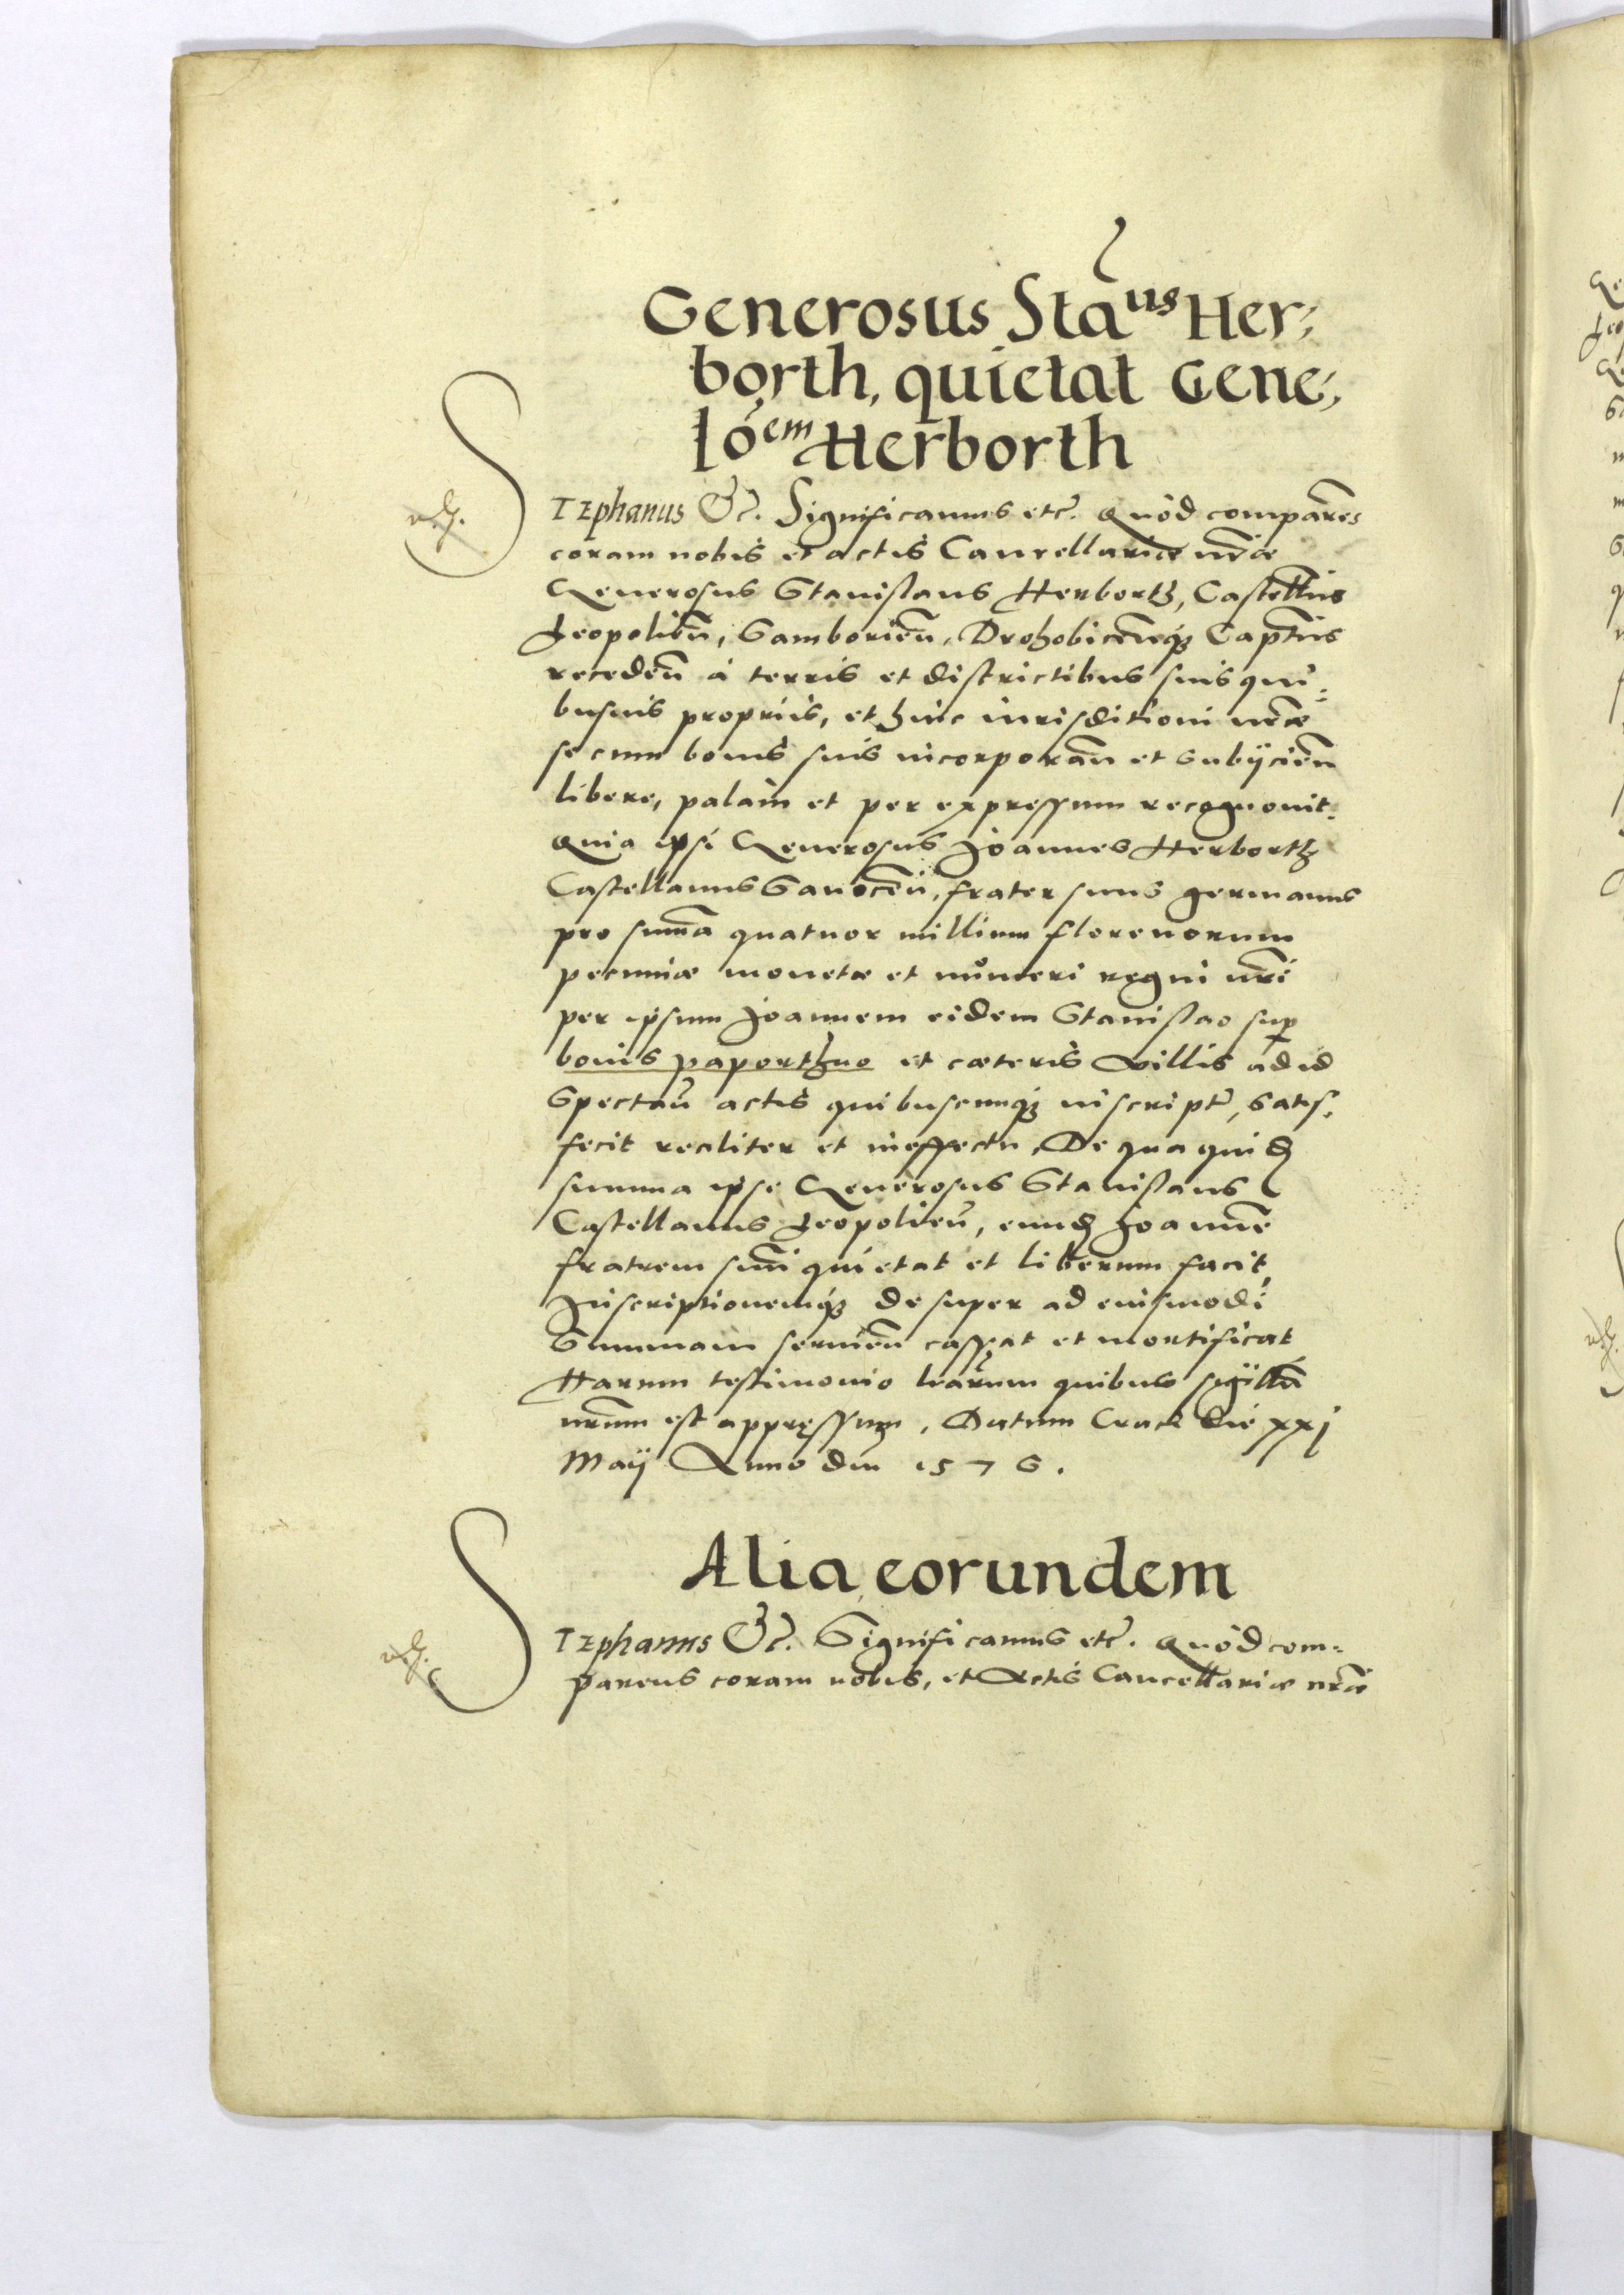 Generosus Sta᷃us Her,
borth, quietat Gene,
Ioem Herborth
STEphanus &c. Significamus etc̃. Quod compare͂s
coram nobis et actis Cancellariæ nr̃æ
Generosus Stanislaus Herborth, Castell͂us
Leopolien͂, Samborien͂, Drohobicen͂q₃ Capt͂us
receden͂ à terris et districtibus suis qui-
busuis propriis, et huic iurisditioni nr̃æ
se cum bonis suis incorporan͂ et subÿcien͂
libere, palam et per expressum recognouit.
Quia ipsi Generosus Joannes Herborth
Castellanus Sanocen͂, frater suus germanus
pro sum͂a quatuor millium florenorum
pecuniæ monetæ et numeri regni nr̃i
per ipsum Joannem eidem Stanislao sup̱
bonis paporthno et cæteris Villis ad id
Spectan͂ actis quibuscunq₃ inscript͂, satis,
fecit realiter et in effectu, De qua quid͂
summa ipse Generosus Stanislaus
Castellanus Leopolien͂, eund͂ Joanne͂
fratrem suu͂ quietat et liberum facit,
Inscriptionemq₃ desuper ad eiusmodi
Summam seruien͂ cassat et mortificat
Harum testimonio lr̃arum quibus sigillu͂
nr̃um est appressum, Datum Crac͂ die xxj
Maÿ Anno dni͂ 1576.
Alia eorundem
STEphanus &c. Significamus etc̃. Quod com-
parens coram nobis, et Actis Cancellariæ nr̃æ